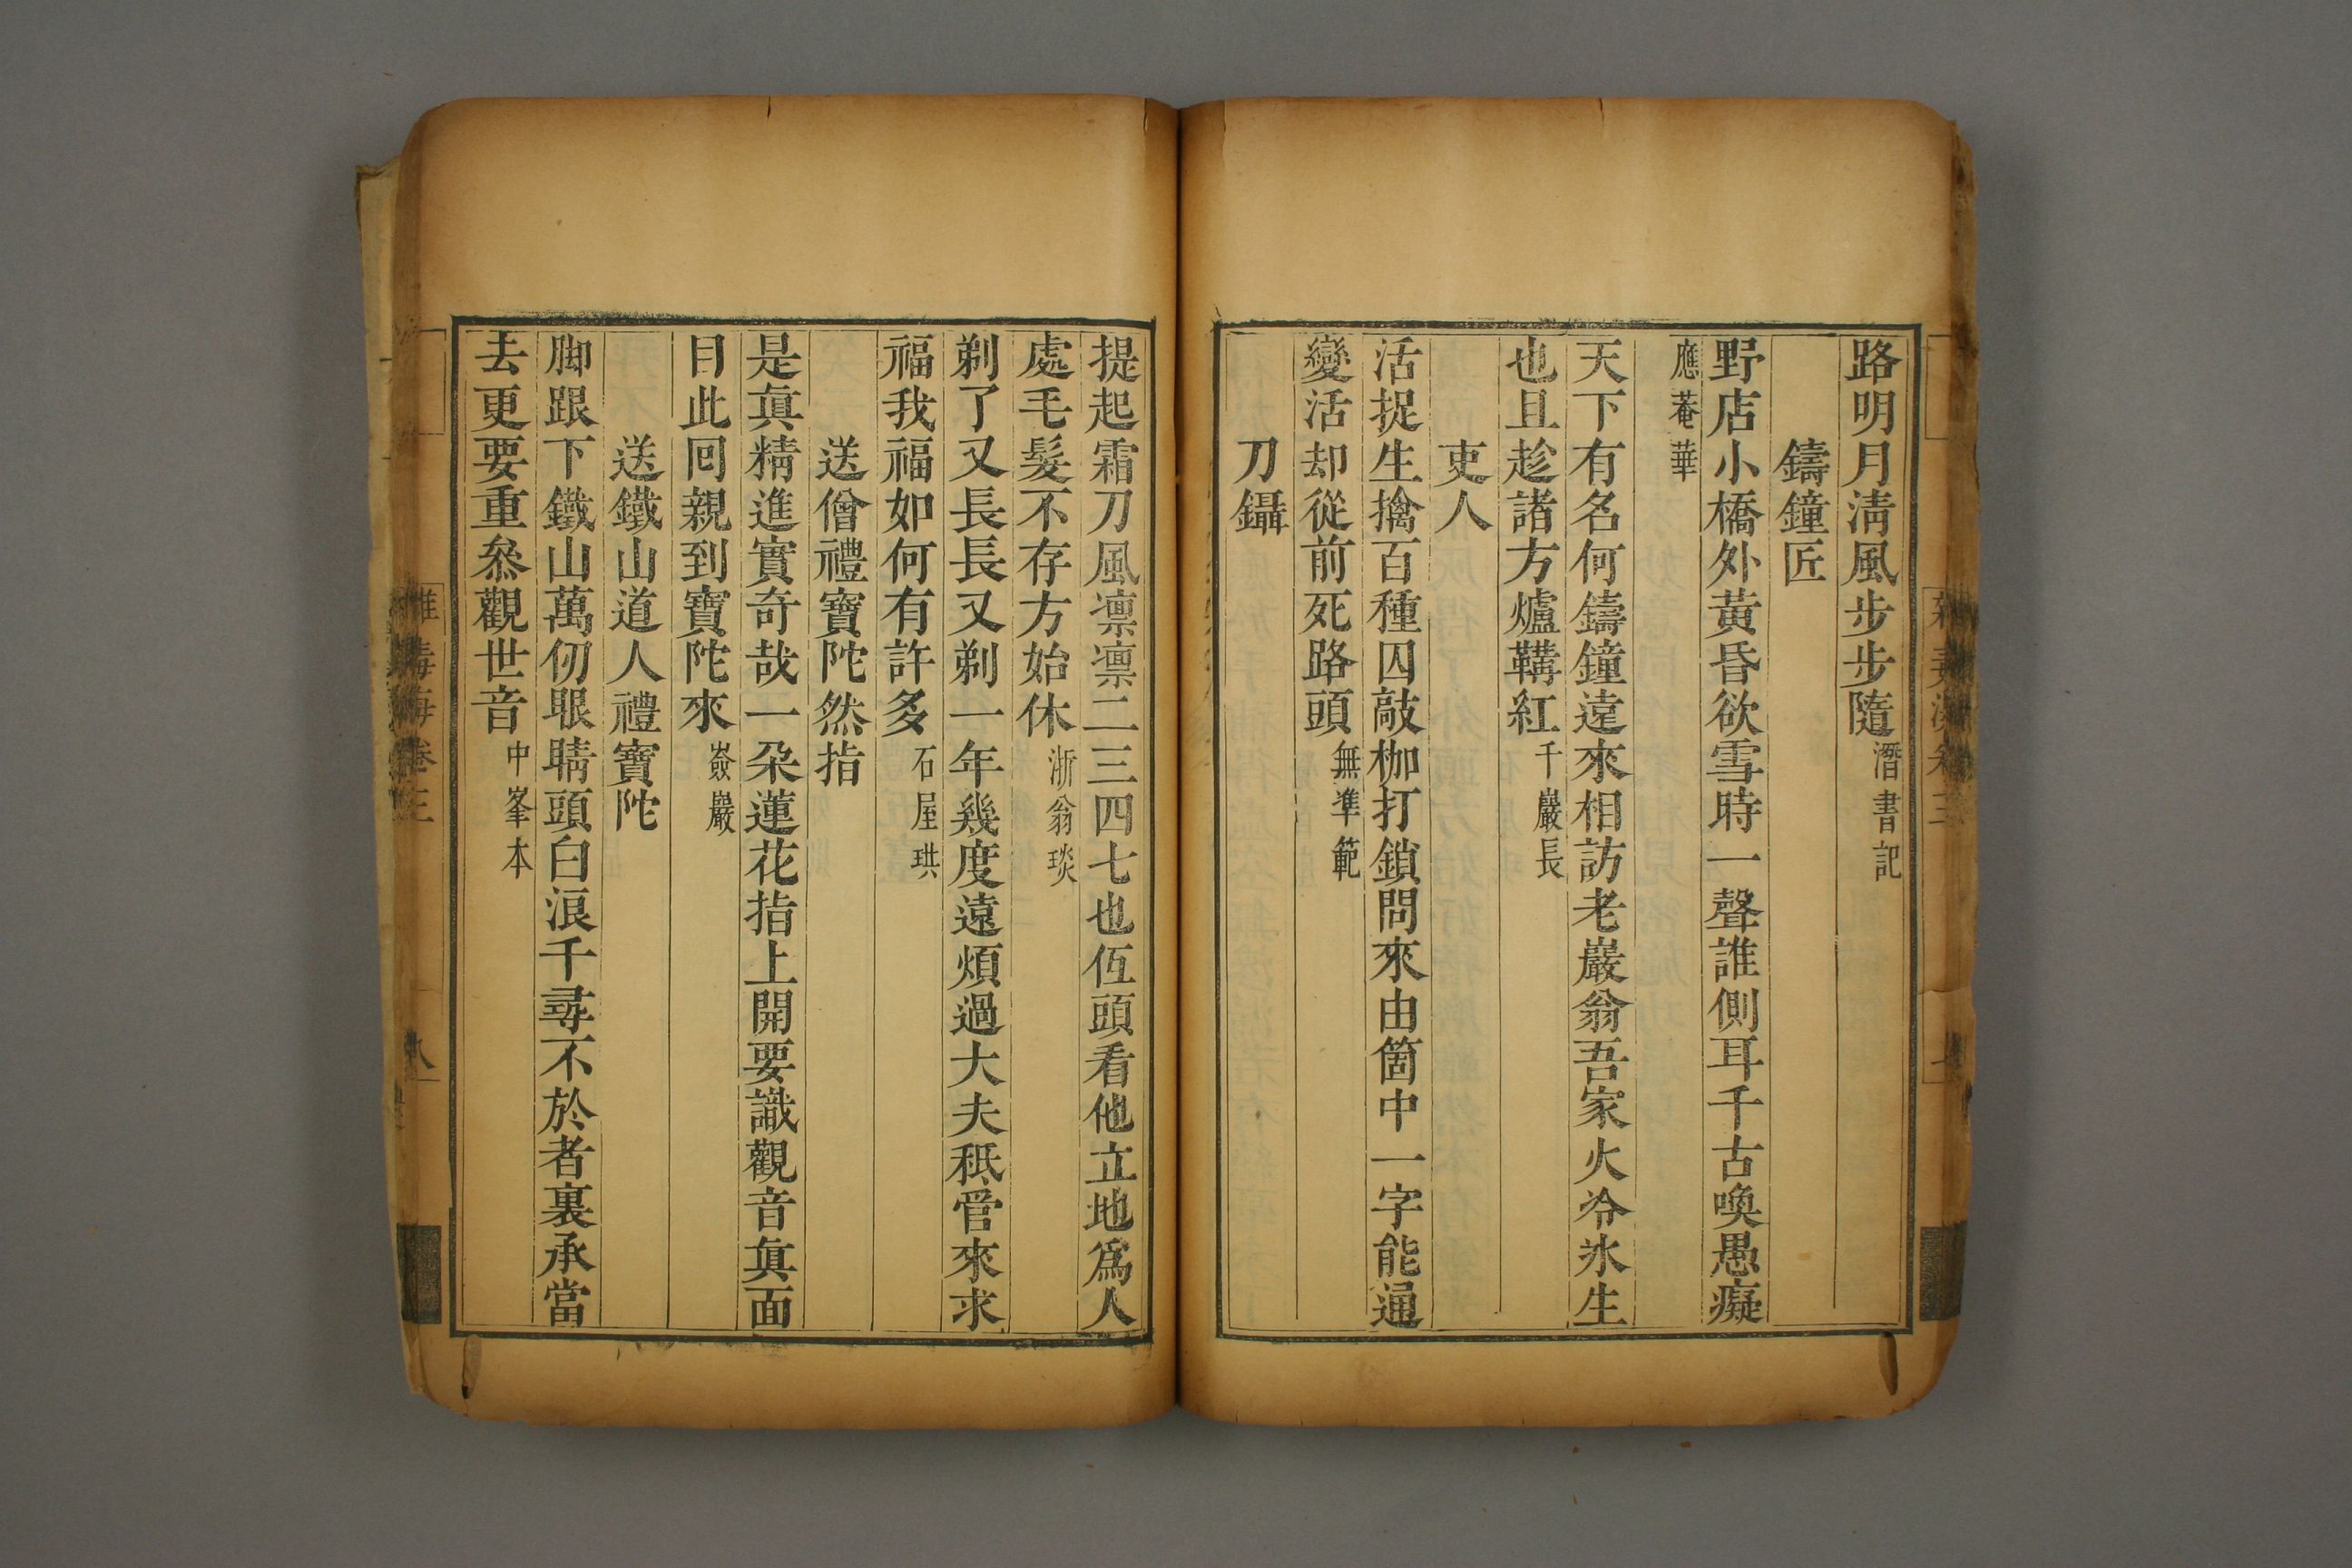 路明月清風步步隨潛書記
鑄鐘匠
野店小橋外黃昏欲雪時一聲誰側耳千古喚愚癡
應菴華
天下有名何鑄鐘遠來相訪老巖翁吾家火冷氷生
也且趁諸方爐鞲紅千巖長
吏人
活捉生擒百種囚敲枷打鎖問來由箇中一字能通
變活却從前死路頭無準範
刀鑷
提起霜刀風凛凛二三四七也低頭看他立地爲人
處毛髮不存方始休浙翁琰
剃了又長長又剃一年幾度遠煩過大夫秖管來求
福我福如何有許多石屋珙
送僧禮寶陀然指
是眞精進實奇哉一朶蓮花指上開要識觀音眞面
目此回親到寶陀來嶮巖
送鐵山道人禮寶陀
脚跟下鐵山萬仞眼睛頭白浪千尋不於者裏承當
去更要重叅觀世音中峯本
雜毒海卷三
八